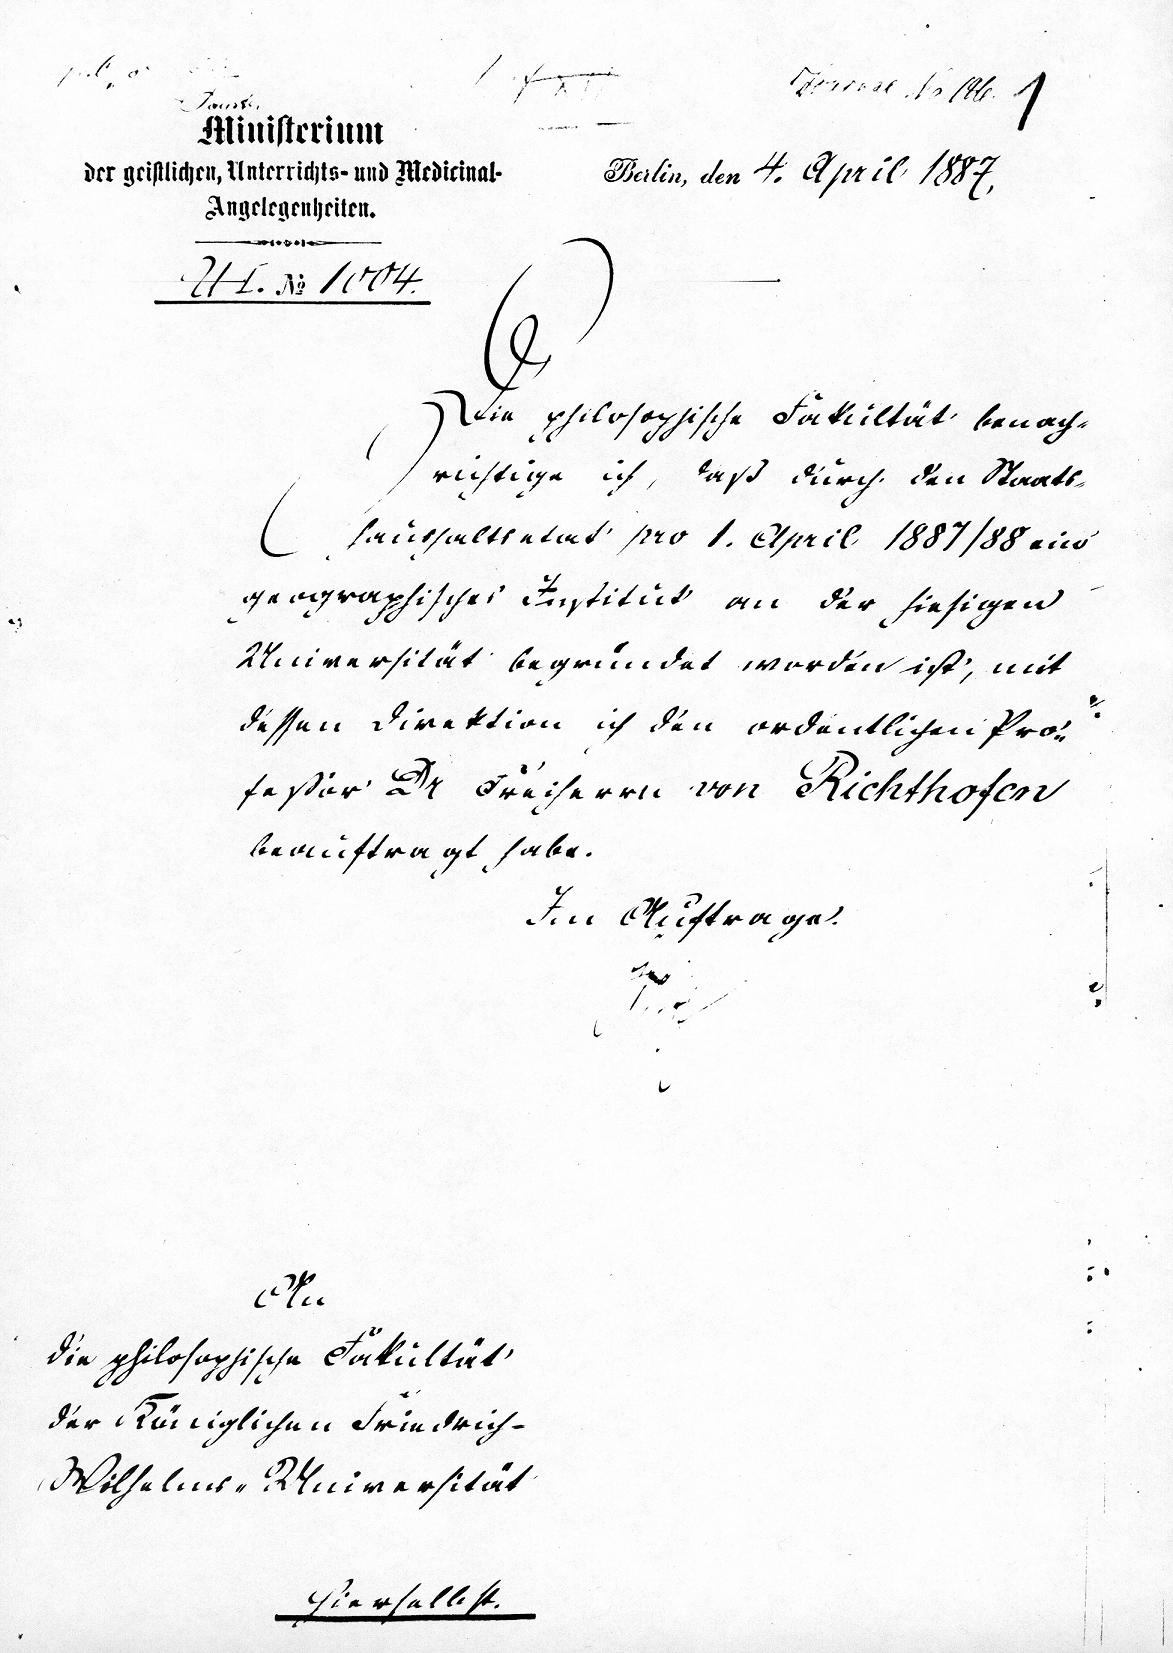 Ministerium
der geistlichen, Unterrichts- und Medicinal-
Angelegenheiten.
Berlin, den 4. April 1887.
U I. No 1004.
Die philosophische Fakultät benach-
richtige ich, daß durch den Staats-
haushaltsetat pro 1. April 1887/88 ein
geographisches Institut an der hiesigen
Universität begründet worden ist, mit
dessen Direktion ich den ordentlichen Pro-
fessor Dr Freiherrn von Richthofen
beauftragt habe.
Im Auftrage.
An
die philosophische Fakultät
der Königlichen Friedrich-
Wilhelms-Universität
hierselbst.